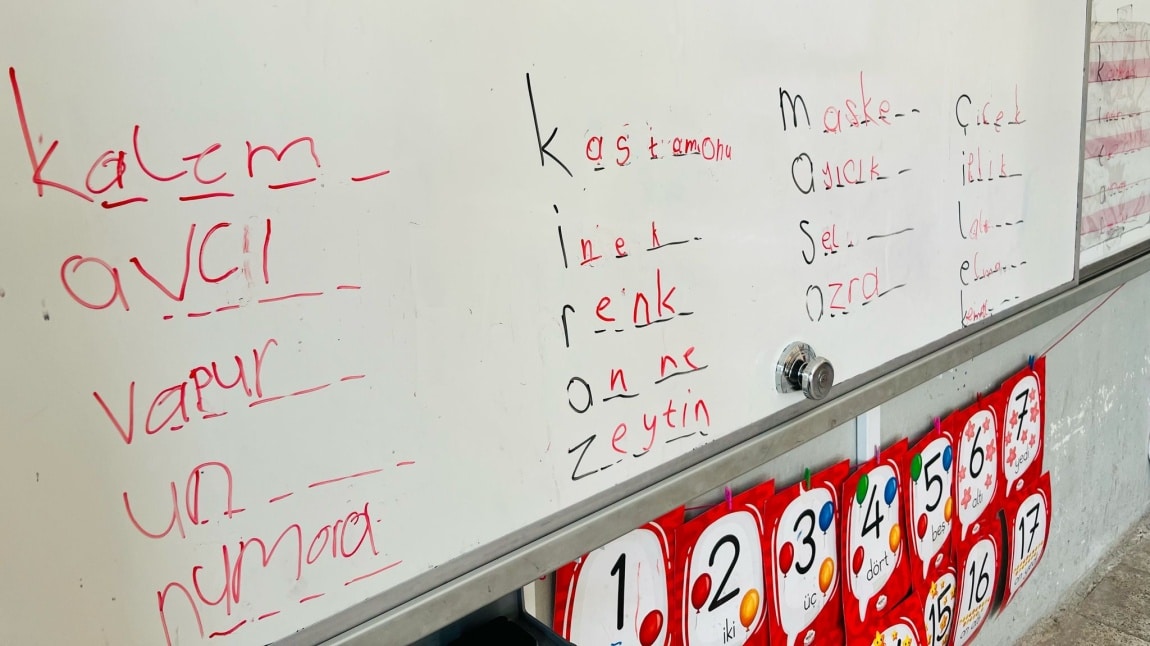 kalem
avcı
vapur
un
numara
kastamonu
inek
renk
anne
zeytin
maske
ayıcık
sel
azra
çiçek
iplik
lale
elma
1
2
iki
3
üç
4
dört
5
beş
6
altı
7
yedi
15
16
17